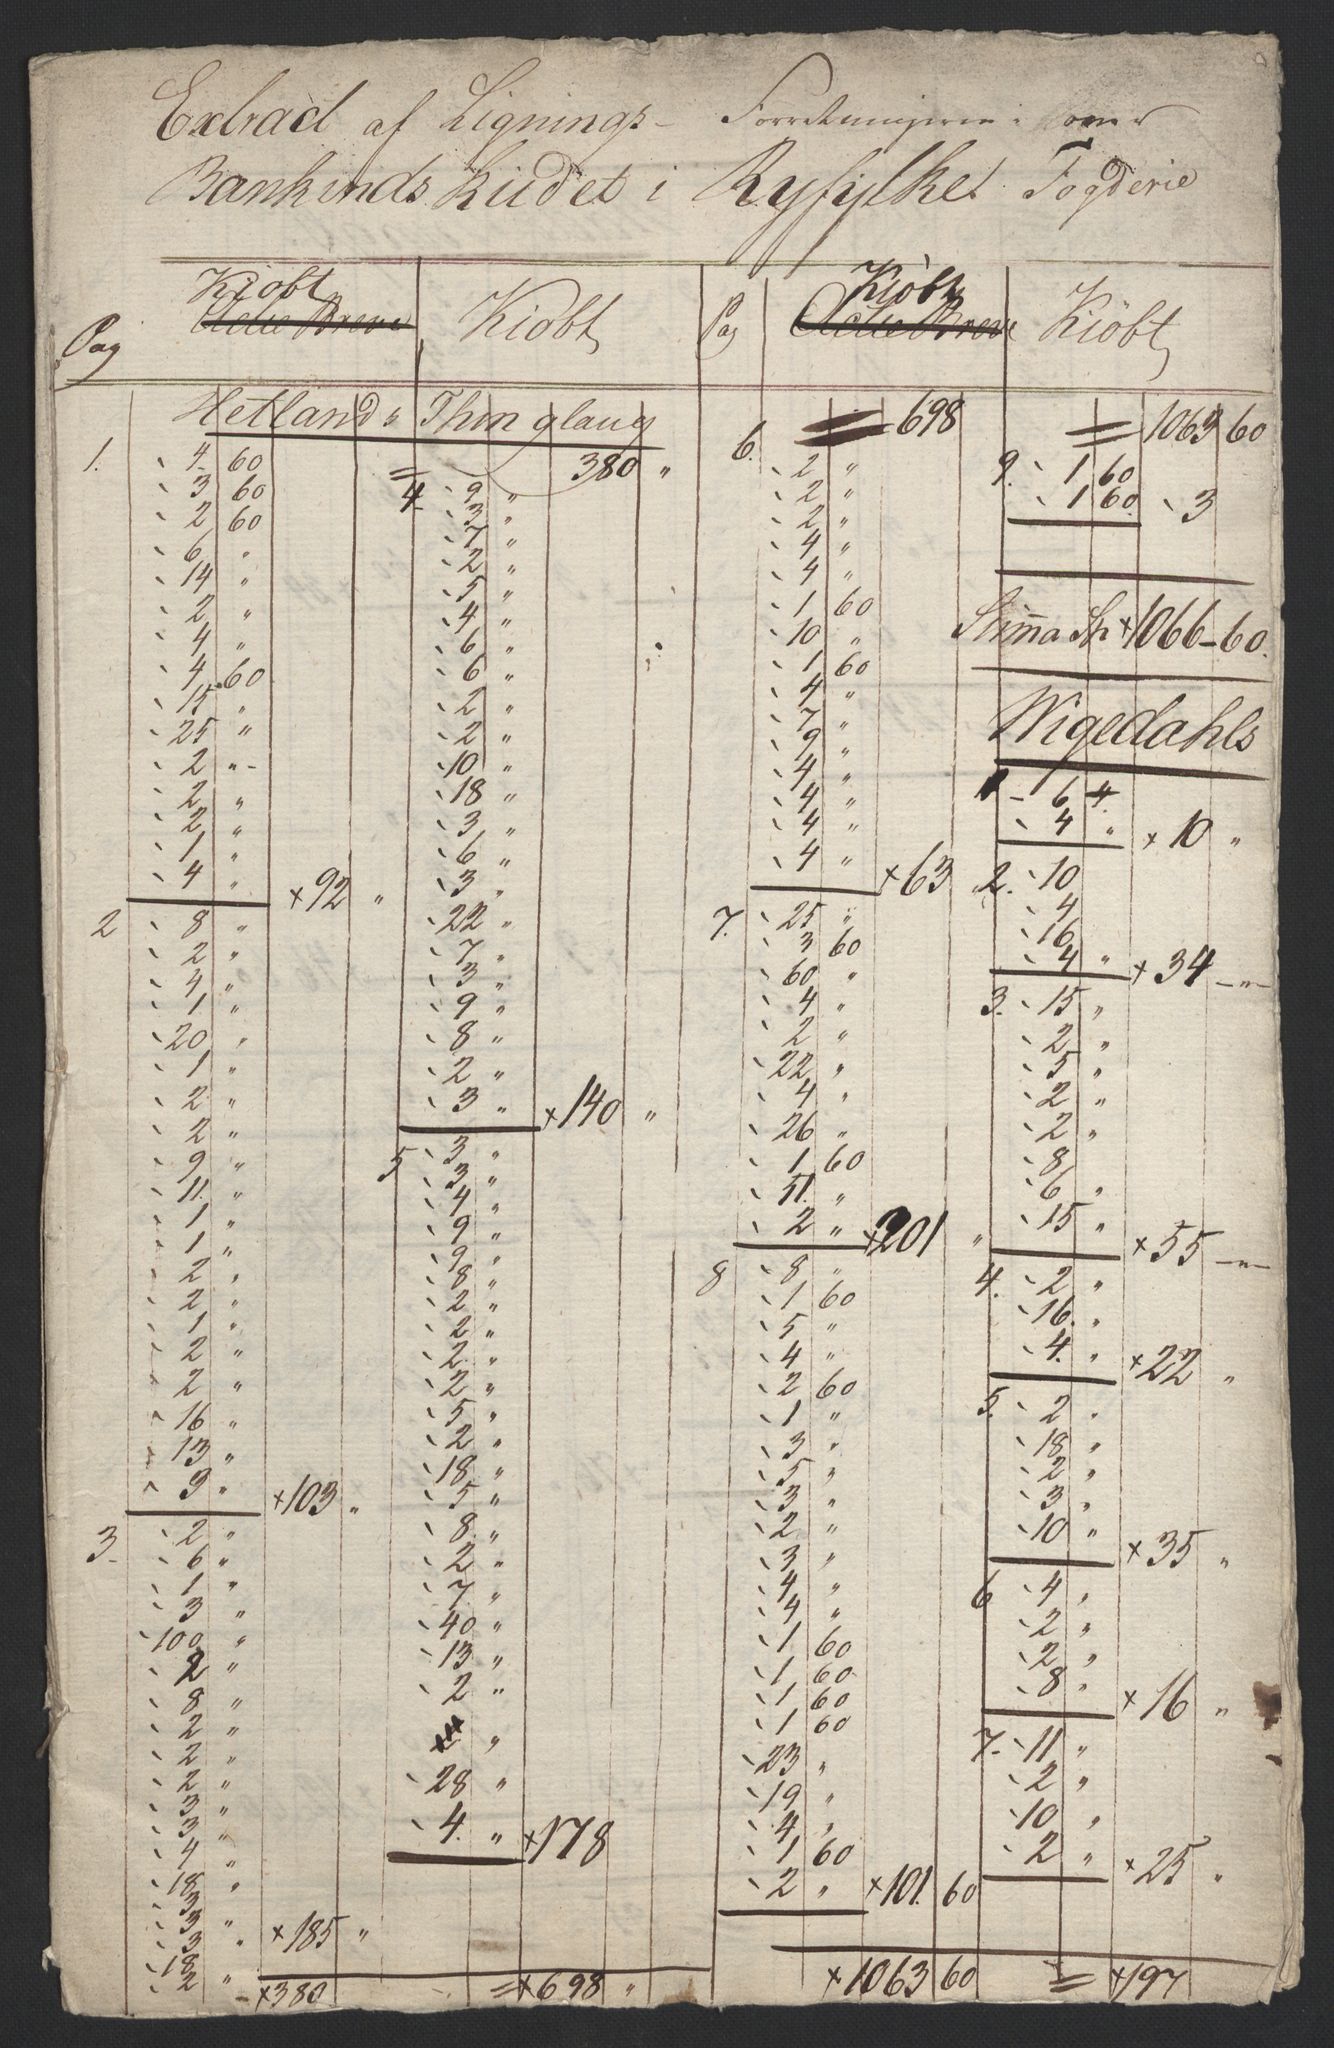 Extract af Lignings- Forretningerne i
Bankindskudet i Ryfylket Fogderie
Pag
Kiöbt
Actie Breve
Kiöbt
Pag
Kiöbt
Actie Breve
Kiöbt
Hetlands Thinglaug
1. 4 60
3 60
2 60
6 "
14 "
2 "
4 "
4 60
15 "
25 "
2 "
2 "
2 "
1 "
4 " × 92 "
2 8 "
2 "
4 "
1 "
20 "
1 "
2 "
2 "
9 "
11 "
1 "
1 "
2 "
2 "
1 "
2 "
2 "
16 "
13 "
3 " × 103 "
3. 2 "
6 "
1 "
3 "
100 "
2 "
8 "
2 "
2 "
2 "
3 "
3 "
4 "
18 "
3
3 "
3 " × 185 "
18
2 "
× 380
= 380 "
4. 9 "
3 "
7 "
2 "
5 "
4 "
6 "
6 "
2 "
2 "
10 "
18 "
3 "
6 "
3 "
22 "
7 "
3 "
9 "
8 "
2 "
3 " × 140 "
5 3 "
3 "
4 "
9 "
9 "
8 "
2 "
2 "
2 "
2 "
5 "
2 "
18 "
5 "
8 "
2 "
7 "
40 "
13 "
2 "
28 "
4 " × 178
= × 698 "
= 698
6. 2 "
2 "
2 "
4 "
4 "
1 60
10 "
1 60
4 "
7 "
9 "
4 "
4 "
4 "
4 " × 63
7. 25 "
3 60
60 "
4 "
2 "
22 "
4 "
26 "
1 60
51 "
2 " × 201 "
8 8 "
1 60
5 "
4 "
2 60
1 "
3 "
5 "
3 "
2 "
3 "
4 "
4 "
1 60
1 60
1 60
1 60
23 "
19 "
4 "
1 60
2 " × 101 60
× 1063 60
= 1063 60
9. 1 60
1 60 3
Suma Sp × 1066-60.
Wigedahls
1 6 "
4 " × 10 "
2. 10
4
16
4 " × 34 -"-
3. 15 "
2 "
5 "
2 "
2 "
8
6 "
15 " × 55 -"-
4. 2 "
16 "
4 " × 22 "
5. 2 "
18 "
2 "
3 "
10 " × 35 "
6 4 "
2 "
2 "
8 " × 16 "
7. 11 "
2 "
10 "
2 " × 25 "
= × 197